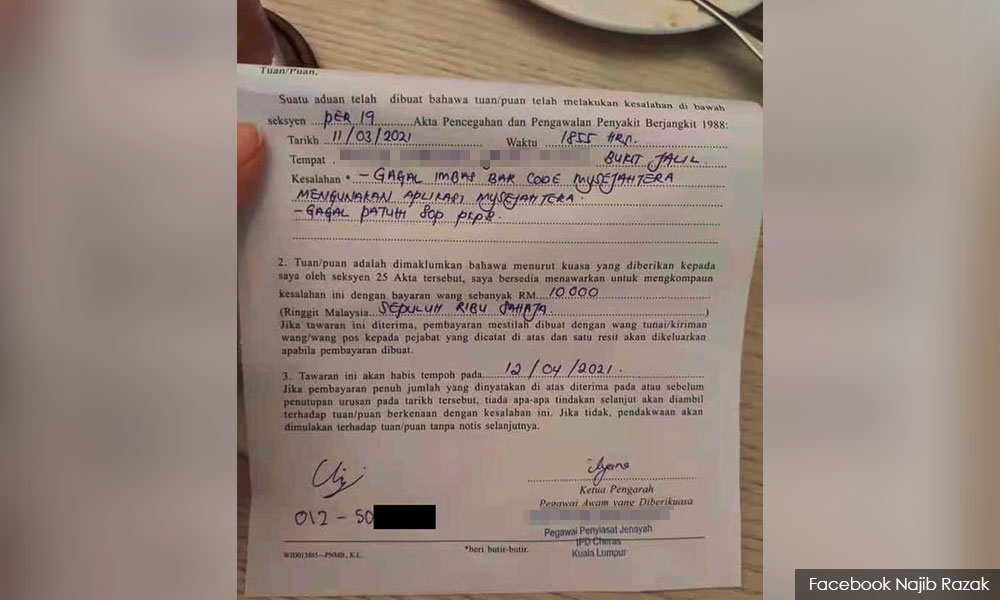 Tuan/Puan,
Suatu aduan telah dibuat bahawa tuan/puan telah melakukan kesalahan di bawah
seksyen PER 19 Akta Pencegahan dan Pengawalan Penyakit Berjangkit 1988:
Tarikh 11/03/2021 Waktu 1855 HRS.
Tempat BUKIT JALIL.
Kesalahan * - GAGAL IMBAS BAR CODE MYSEJAHTERA
MENGUNAKAN APLIKASI MYSEJAHTERA.
- GAGAL PATUH SOP PKPB.
2. Tuan/puan adalah dimaklumkan bahawa menurut kuasa yang diberikan kepada
saya oleh seksyen 25 Akta tersebut, saya bersedia menawarkan untuk mengkompaun
kesalahan ini dengan bayaran wang sebanyak RM 10000
(Ringgit Malaysia SEPULUH RIBU SAHAJA )
Jika tawaran ini diterima, pembayaran mestilah dibuat dengan wang tunai/kiriman
wang/wang pos kepada pejabat yang dicatat di atas dan satu resit akan dikeluarkan
apabila pembayaran dibuat.
3. Tawaran ini akan habis tempoh pada 12/04/2021.
Jika pembayaran penuh jumlah yang dinyatakan di atas diterima pada atau sebelum
penutupan urusan pada tarikh tersebut, tiada apa-apa tindakan selanjut akan diambil
terhadap tuan/puan berkenaan dengan kesalahan ini. Jika tidak, pendakwaan akan
dimulakan terhadap tuan/puan tanpa notis selanjutnya.
Ketua Pengarah
Pegawai Awam yang Diberikuasa
012 - 50
Pegawai Penyiasat Jenayah
IPD Cheras
Kuala Lumpur
*beri butir-butir.
WJD013865—PNMB, K.L.
Facebook Najib Razak